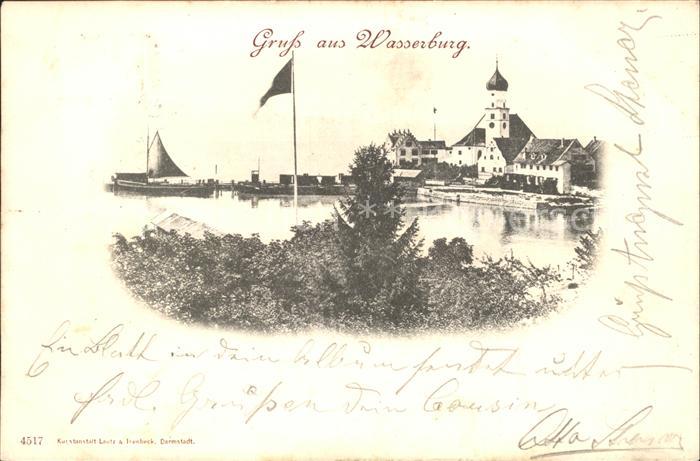 Gruß aus Wasserburg.
Ein Blatt in dein Album sendet unter
frdl. Grüßen dein Cousin
Otto
4517 Kunstanstalt Lautz & Isenbeck, Darmstadt.